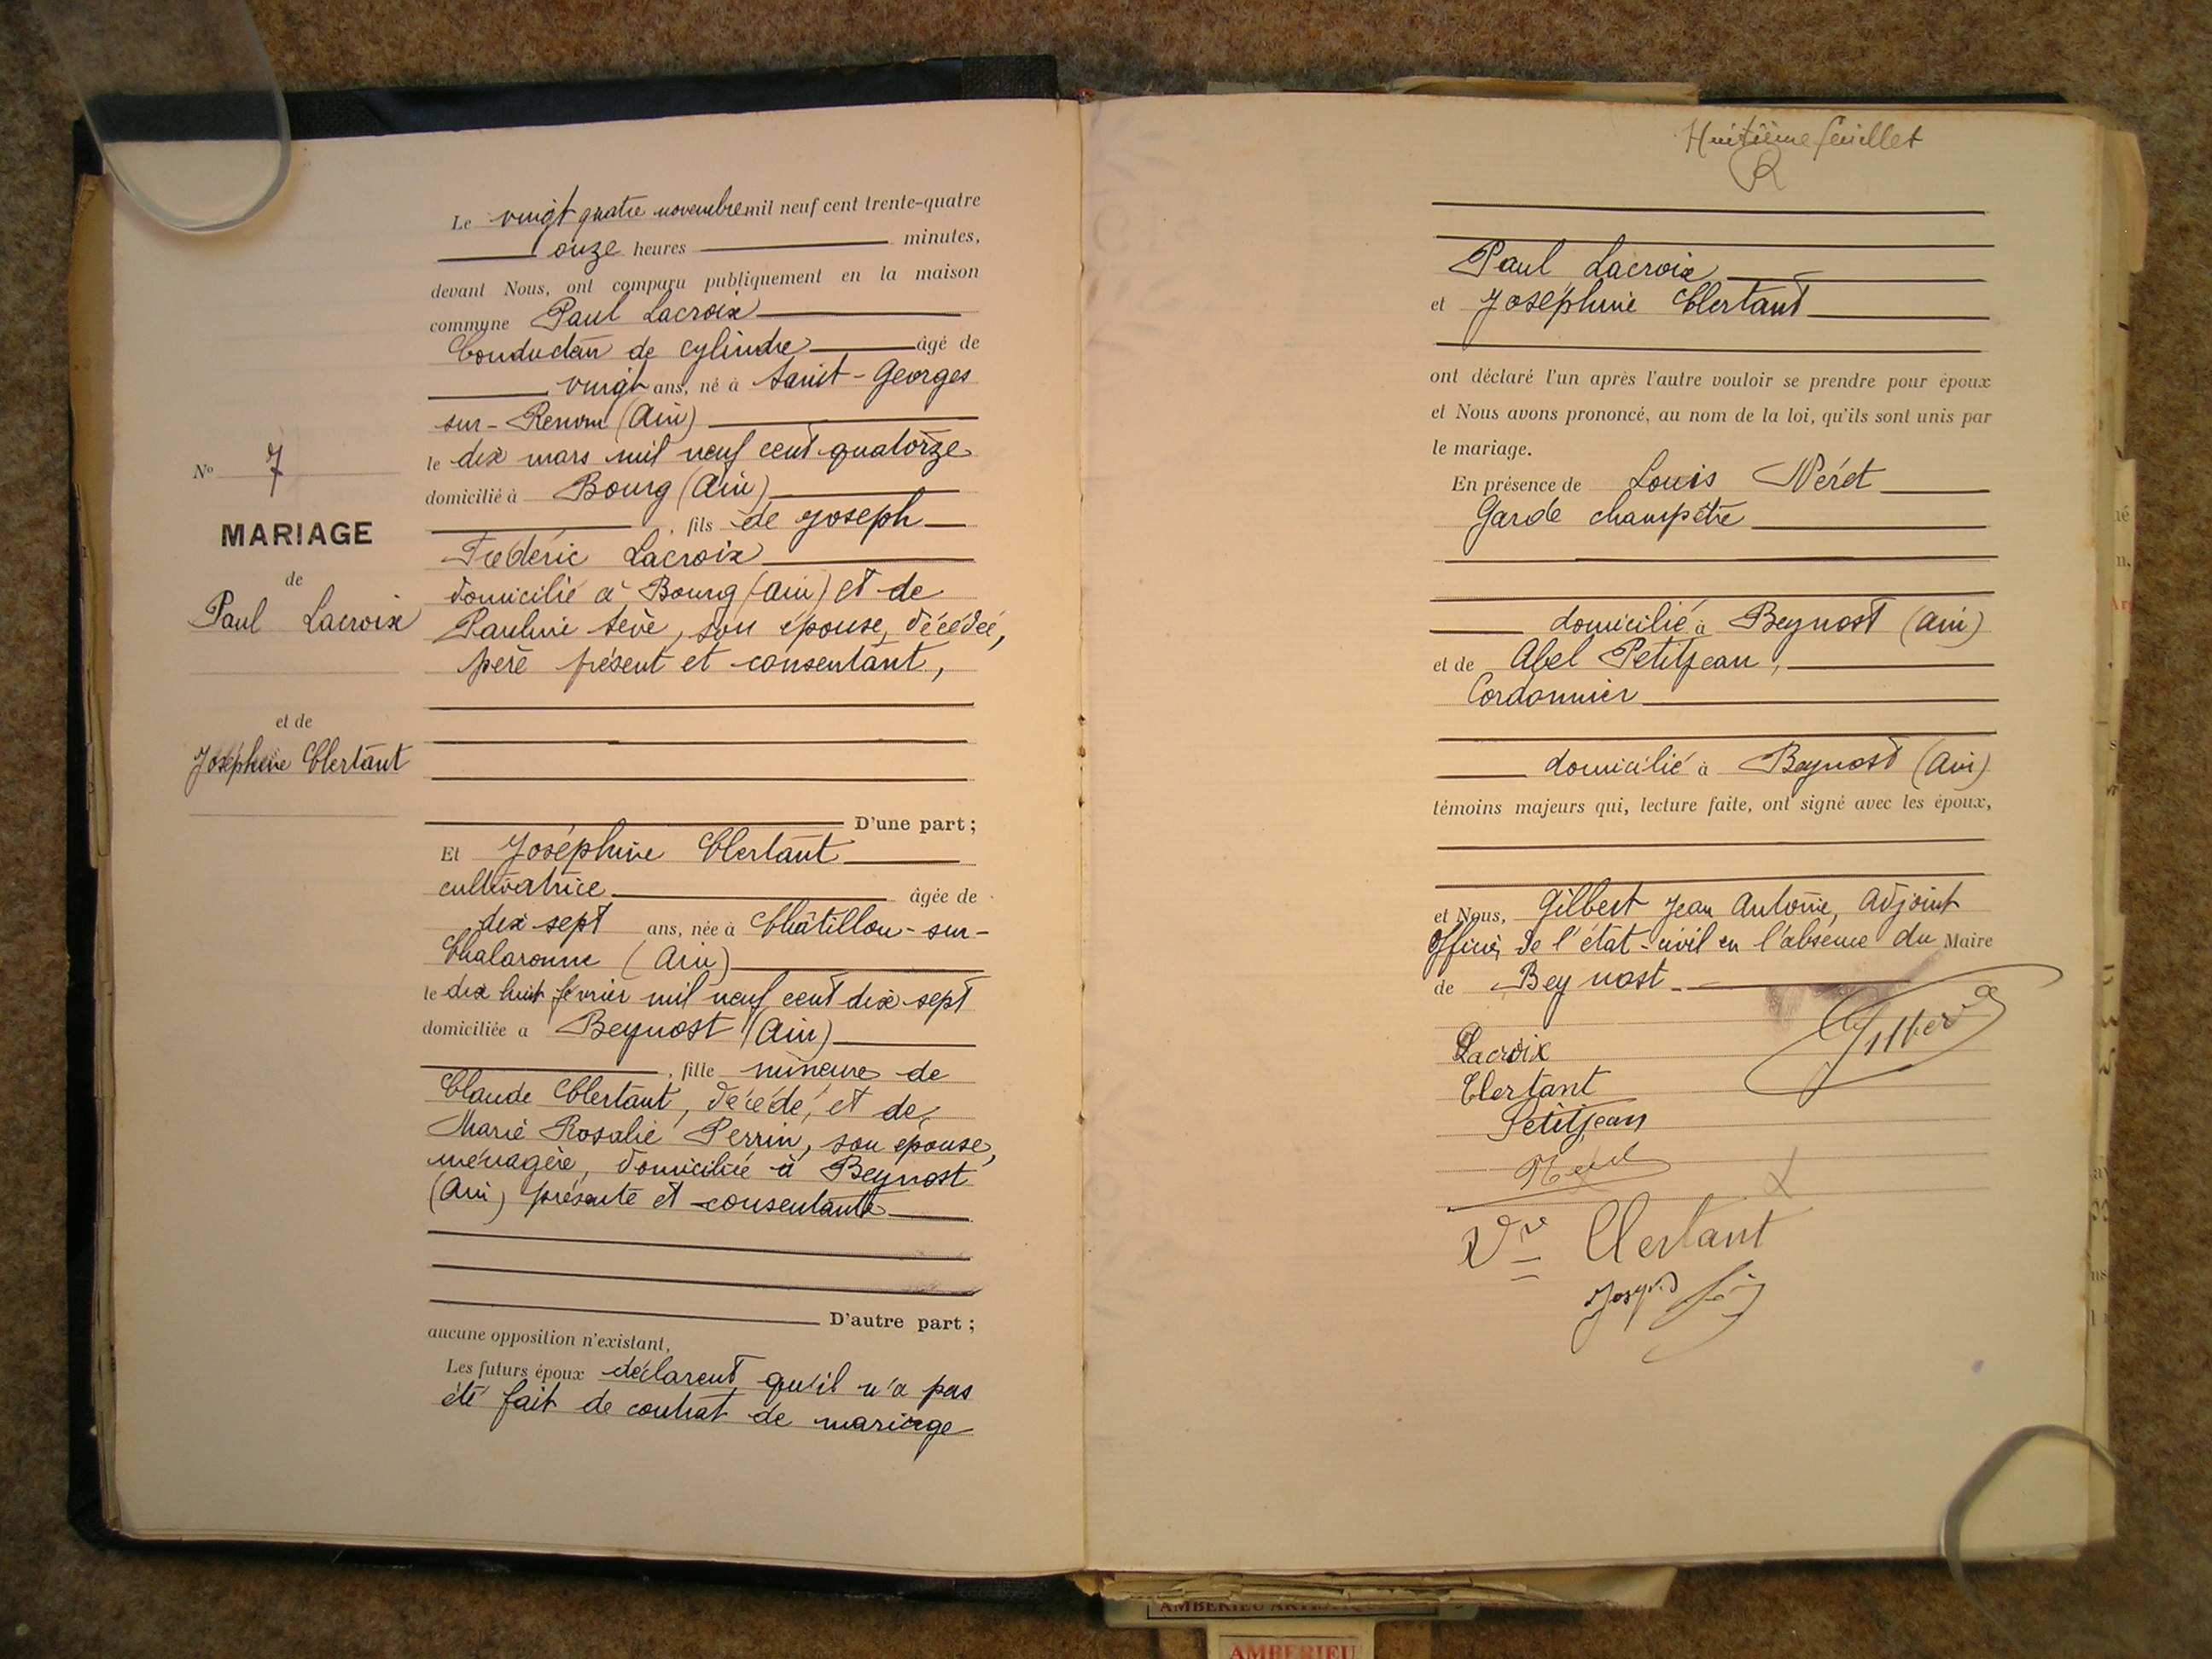 N° 7
MARIAGE
de
Paul Lacroix
et de
Joséphine Clertant
Le vingt quatre novembre mil neuf cent trente-quatre
onze heures minutes,
devant Nous, ont comparu publiquement en la maison
commune Paul Lacroix
Conducteur de cylindre âgé de
vingt ans, né à Saint-Georges
sur-Renom (Ain)
le dix mars mil neuf cent quatorze
domicilié à Bourg (Ain)
, fils de Joseph
Frédéric Lacroix
domicilié à Bourg (Ain) et de
Pauline Sève, son épouse, décédée,
père présent et consentant,
D'une part;
Et Joséphine Clertant
cultivatrice âgée de
dix sept ans, née à Châtillon-sur-
Chalaronne (Ain)
le dix huit février mil neuf cent dix-sept
domiciliée à Beynost (Ain)
, fille mineure de
Claude Clertant, décédé, et de
Marie Rosalie Perrin, son épouse,
ménagère, domiciliée à Beynost
(Ain) présente et consentante
D'autre part;
aucune opposition n'existant,
Les futurs époux déclarent qu'il n'a pas
été fait de contrat de mariage
Huitième feuillet
Paul Lacroix
et Joséphine Clertant
ont déclaré l'un après l'autre vouloir se prendre pour époux
et Nous avons prononcé, au nom de la loi, qu'ils sont unis par
le mariage.
En présence de Louis Néret
Garde champêtre
domicilié à Beynost (Ain)
et de Abel Petitjean,
Cordonnier
domicilié à Beynost (Ain)
témoins majeurs qui, lecture faite, ont signé avec les époux,
et Nous, Gilbert Jean Antoine, Adjoint
Officier de l'état-civil en l'absence du Maire
de Beynost
Gilbert
Lacroix
Clertant
Petitjean
Vve Clertant
Joseph
AMBERIEU